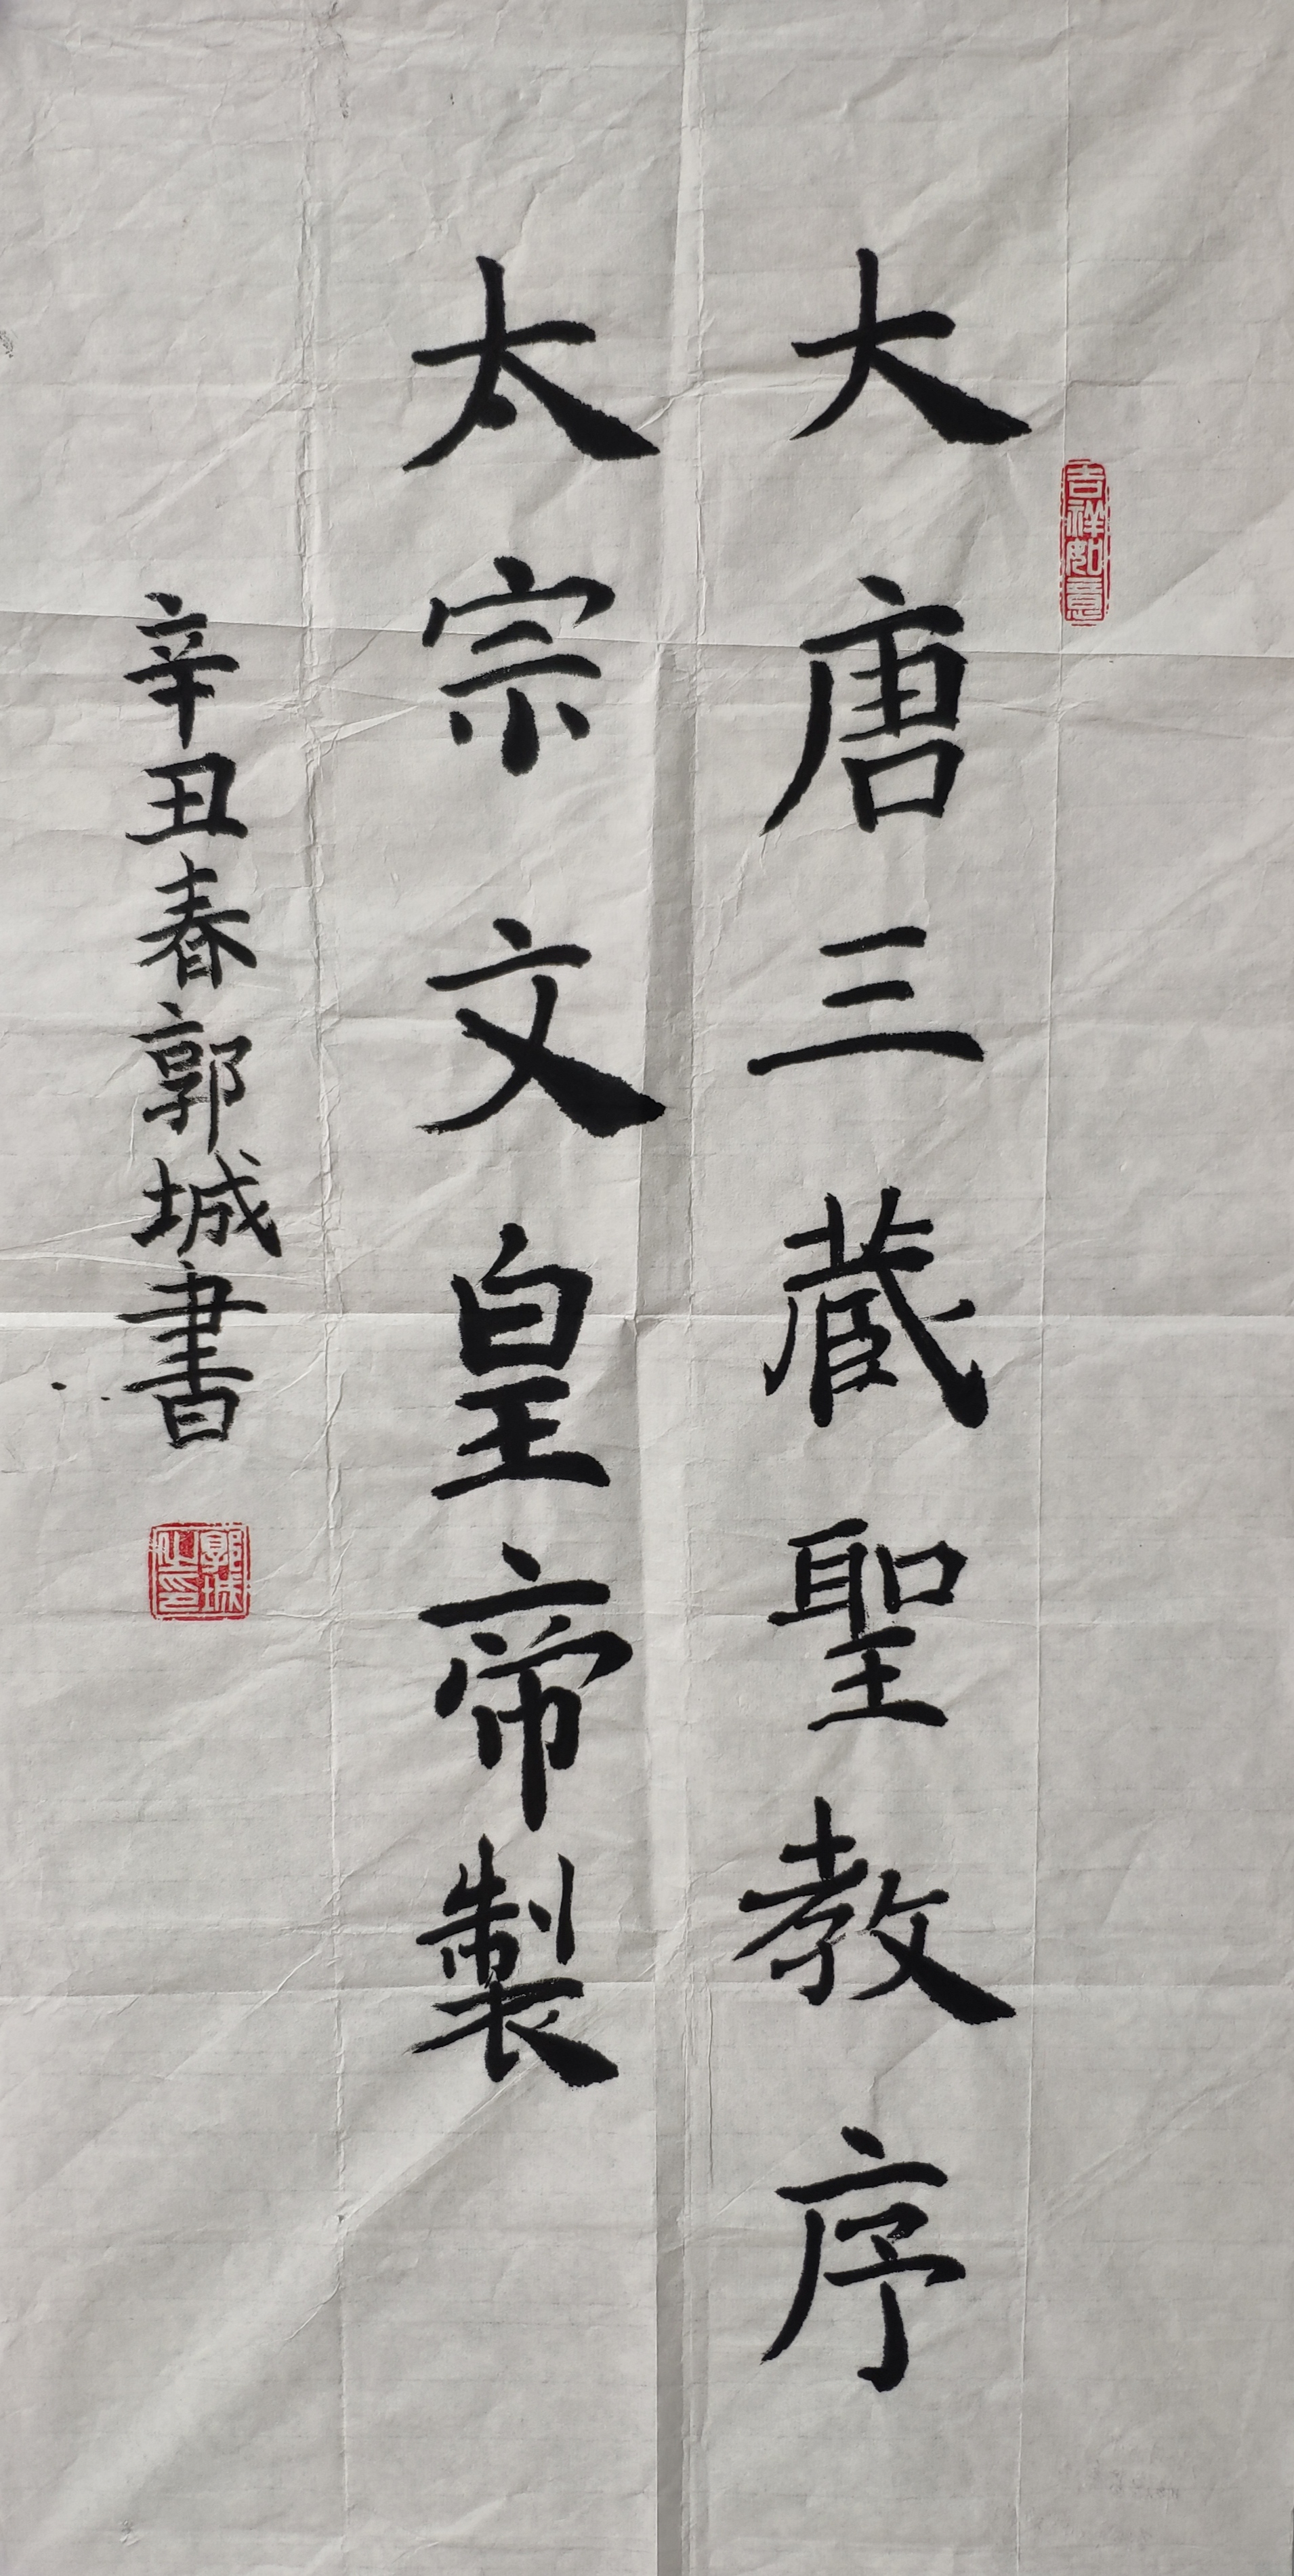 大唐三藏聖教序
吉祥如意
太宗文皇帝製
辛丑春郭城書
郭城之印